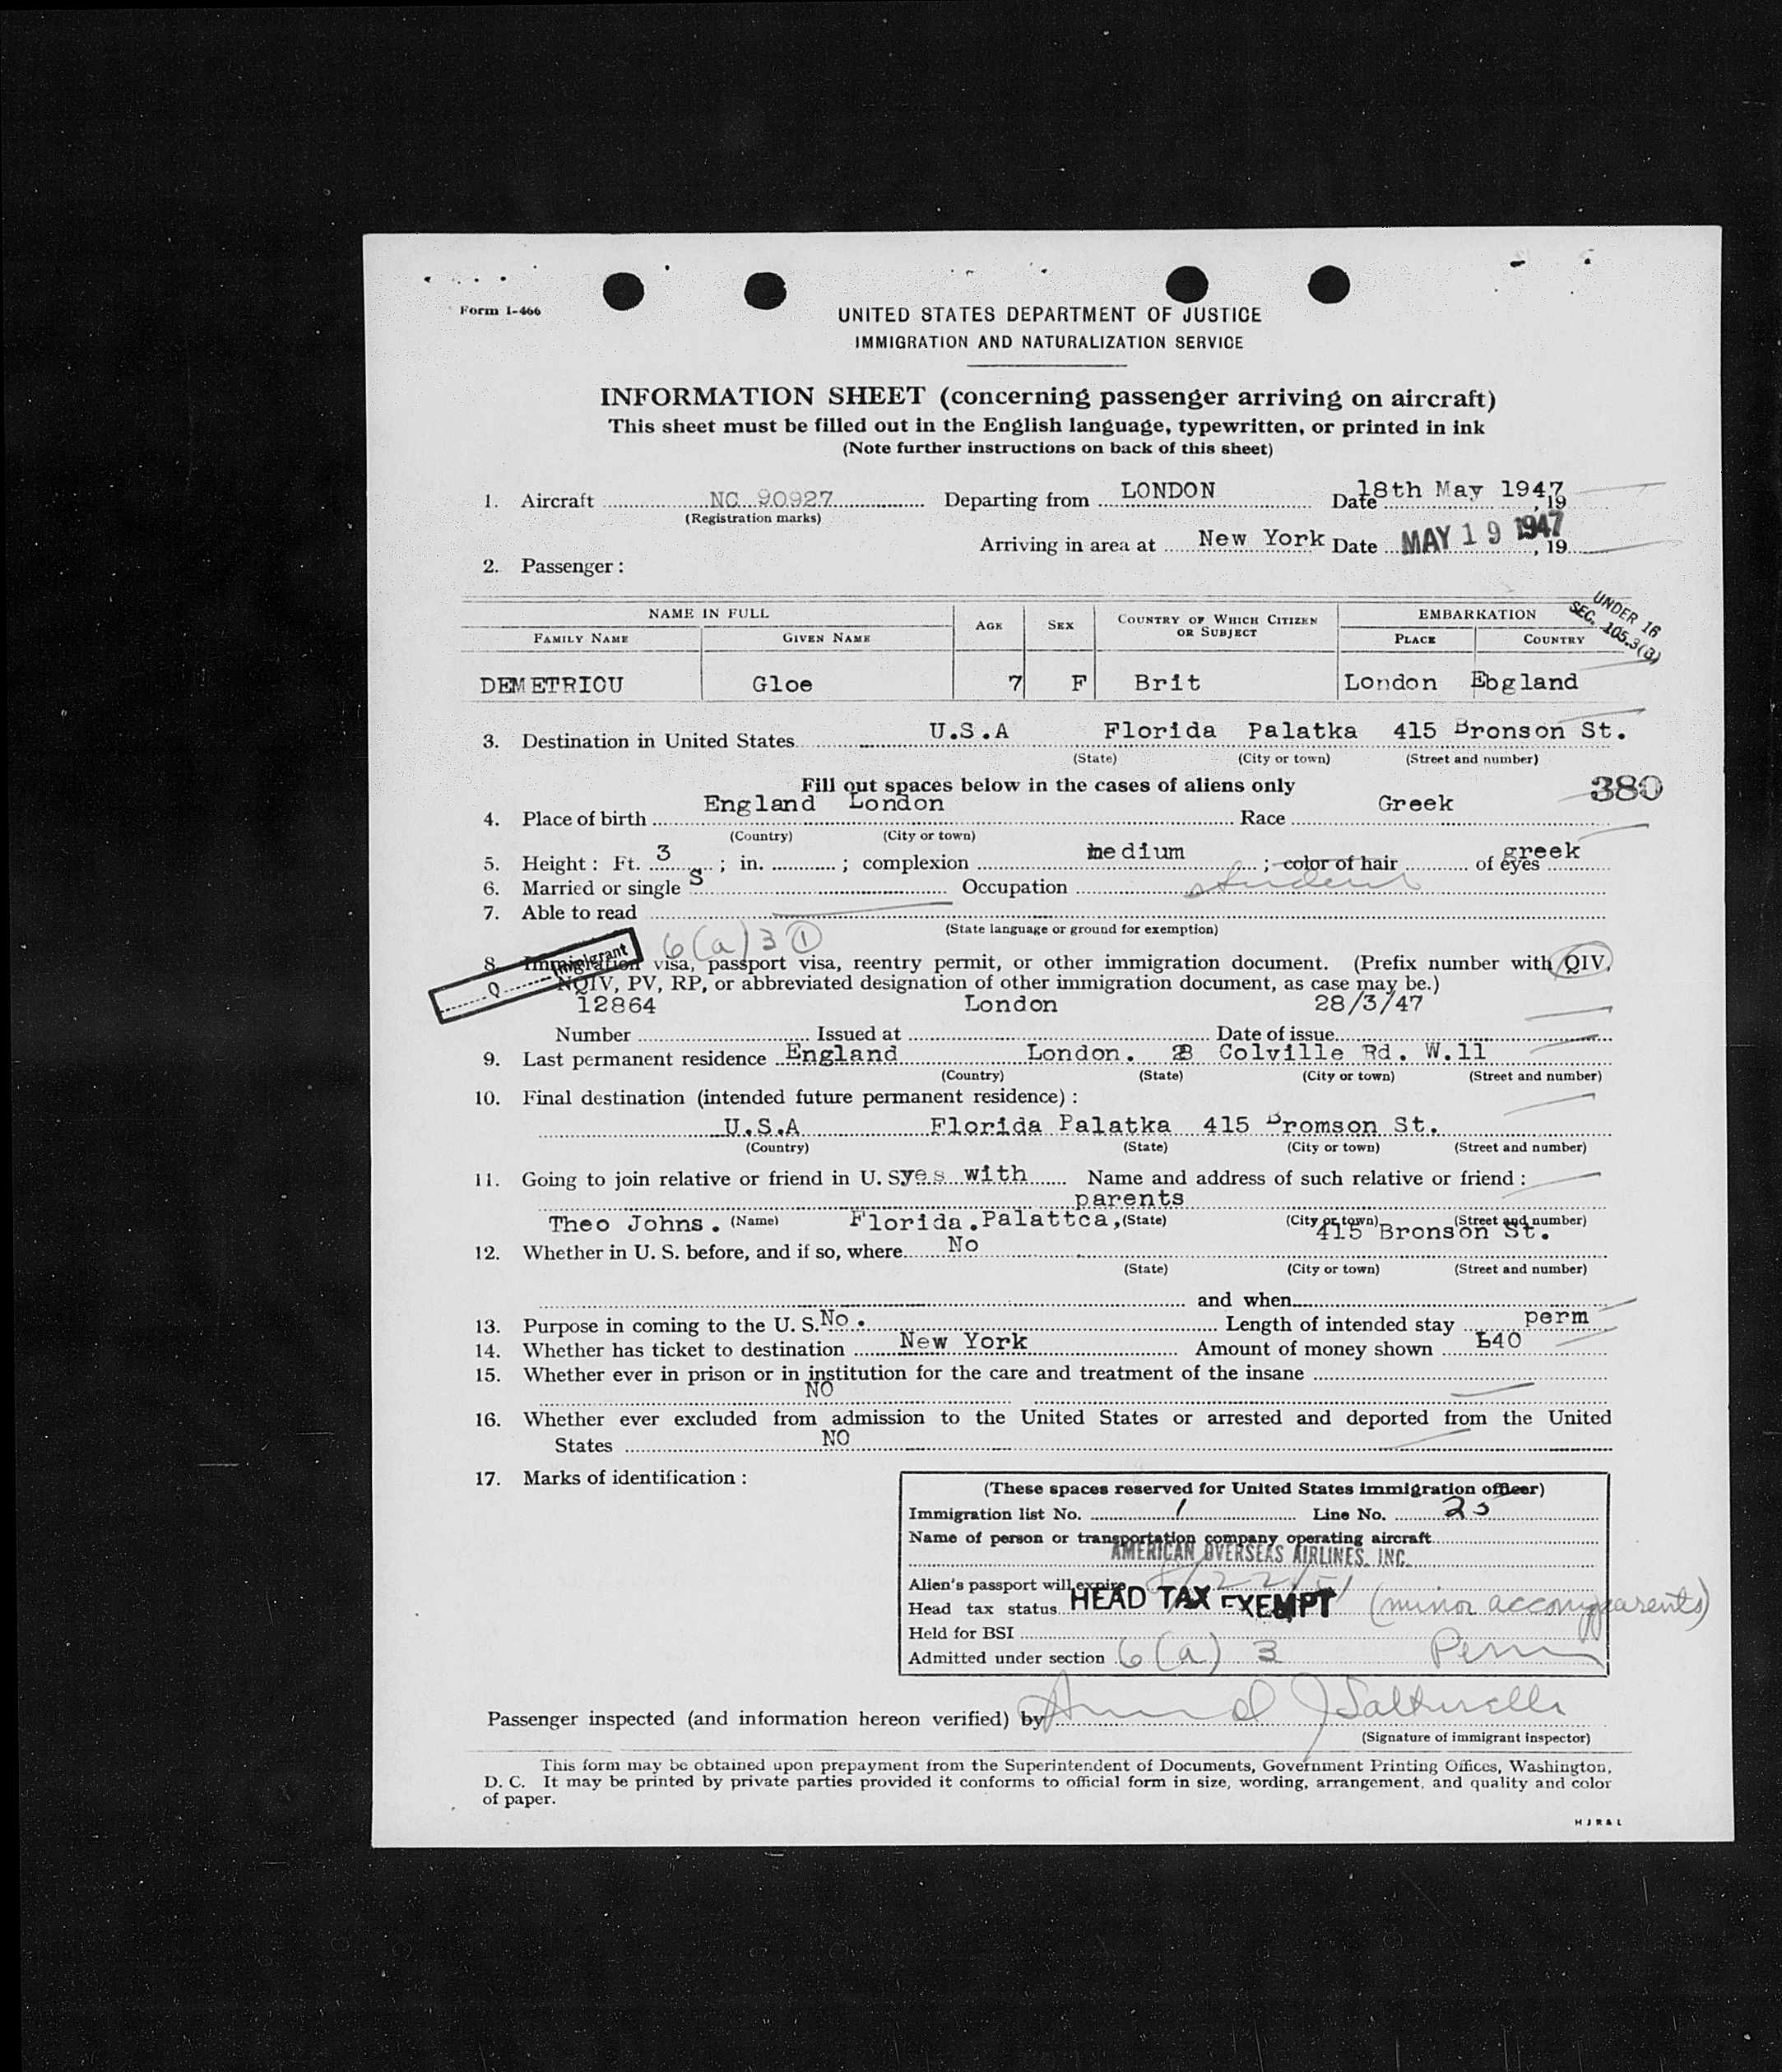 Form I-466
UNITED STATES DEPARTMENT OF JUSTICE
IMMIGRATION AND NATURALIZATION SERVICE
INFORMATION SHEET (concerning passenger arriving on aircraft)
This sheet must be filled out in the English language, typewritten, or printed in ink
(Note further instructions on back of this sheet)
1. Aircraft NC 90927 Departing from LONDON Date 18th May 1947, 19
(Registration marks)
Arriving in area at New York Date MAY 19 1947, 19
2. Passenger:
UNDER 16
SEC. 105.3(B)
NAME IN FULL AGE SEX COUNTRY OF WHICH CITIZEN OR SUBJECT EMBARKATION
FAMILY NAME GIVEN NAME PLACE COUNTRY
DEMETRIOU Gloe 7 F Brit London Ebgland
3. Destination in United States U.S.A Florida Palatka 415 Bronson St.
(State) (City or town) (Street and number)
Fill out spaces below in the cases of aliens only 380
4. Place of birth England London Race Greek
(Country) (City or town)
5. Height: Ft. 3; in. ; complexion medium; color of hair of eyes greek
6. Married or single S Occupation student
7. Able to read
(State language or ground for exemption)
6(a)3 1
Q Immigrant
8. Immigration visa, passport visa, reentry permit, or other immigration document. (Prefix number with QIV,
NQIV, PV, RP, or abbreviated designation of other immigration document, as case may be.)
12864 London 28/3/47
Number Issued at Date of issue
9. Last permanent residence England London. Colville Rd. W.11
(Country) (State) (City or town) (Street and number)
10. Final destination (intended future permanent residence):
U.S.A Florida Palatka 415 Bromson St.
(Country) (State) (City or town) (Street and number)
11. Going to join relative or friend in U. S yes with Name and address of such relative or friend:
parents
Theo Johns. (Name) Florida. Palattca, (State) (City or town) (Street and number)
415 Bronson St.
12. Whether in U. S. before, and if so, where No
(State) (City or town) (Street and number)
and when
13. Purpose in coming to the U. S. No. Length of intended stay perm
14. Whether has ticket to destination New York Amount of money shown 40
15. Whether ever in prison or in institution for the care and treatment of the insane
NO
16. Whether ever excluded from admission to the United States or arrested and deported from the United
States NO
17. Marks of identification:
(These spaces reserved for United States immigration officer)
Immigration list No. 1 Line No.
Name of person or transportation company operating aircraft
AMERICAN OVERSEAS AIRLINES. INC.
Alien's passport will expire
Head tax status HEAD TAX EXEMPT (minor accomp parents)
Held for BSI
Admitted under section 6(a) 3 Perm
Passenger inspected (and information hereon verified) by
(Signature of immigrant inspector)
This form may be obtained upon prepayment from the Superintendent of Documents, Government Printing Offices, Washington,
D. C. It may be printed by private parties provided it conforms to official form in size, wording, arrangement, and quality and color
of paper.
H J R & L